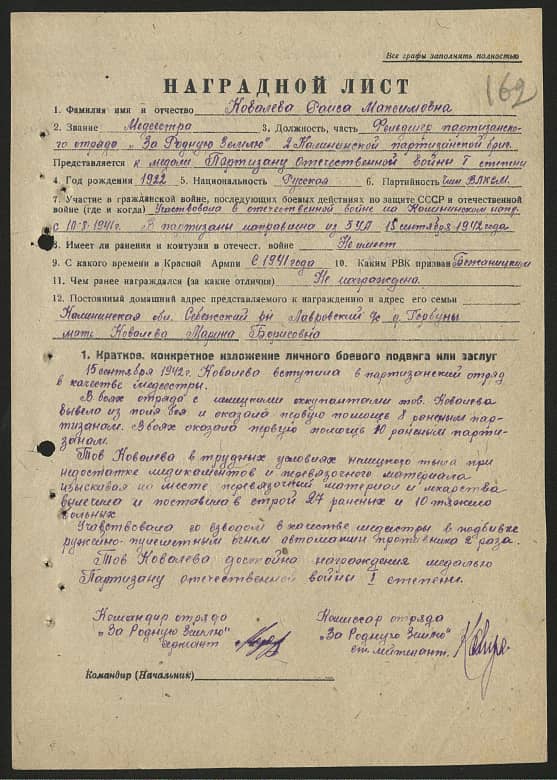 Все графы заполнить полностью
162
НАГРАДНОЙ ЛИСТ
1. Фамилия имя и отчество Ковалева Раиса Максимовна
2. Звание Медсестра 3. Должность, часть Фельдшер партизанско-
го отряда „За Родную Землю" 2 Калининской партизанской бриг.
Представляется к медали „Партизану отечественной войны I степени
4. Год рождения 1922 5. Национальность Русская 6. Партийность Член ВЛКСМ.
7. Участие в гражданской войне, последующих боевых действиях по защите СССР и отечественной
войне (где и когда) Участвовала в отечественной войне на Калининском напр.
с 10-8-1941г. В партизаны направлена из 3 УА 15 сентября 1942 года
8. Имеет ли ранения и контузии в отечест. войне Не имеет
9. С какого времени в Красной Армии С 1941 года 10. Каким РВК призван Бежаницким
11. Чем ранее награждался (за какие отличия) Не награждена.
12. Постоянный домашний адрес представляемого к награждению и адрес его семьи
Калининская обл. Себежский р-н Лавровский с/с д.
мать Ковалева Марина Борисовна
1. Краткое, конкретное изложение личного боевого подвига или заслуг
15 сентября 1942 г. Ковалева вступила в партизанский отряд
в качестве медсестры.
В боях отряда с немецкими оккупантами тов. Ковалева
вывела из поля боя и оказала первую помощь 8 раненым пар-
тизанам. В боях оказала первую помощь 20 раненым парти-
занам.
Тов Ковалева в трудных условиях немецкого тыла при
недостатке медикаментов и перевязочного материала
изыскивая на месте перевязочный материал и лекарства
вылечила и поставила в строй 27 раненых и 10 тяжело
больных
Участвовала со взводом в качестве медсестры в подбивке
ружейно-пулеметным огнем автомашин противника 2 раза.
Тов Ковалева достойна награждения медалью
Партизану отечественной войны I степени.
Командир отряда
„За Родную Землю"
сержант
Комиссар отряда
„За Родную Землю"
ст. лейтенант.
Командир (Начальник)